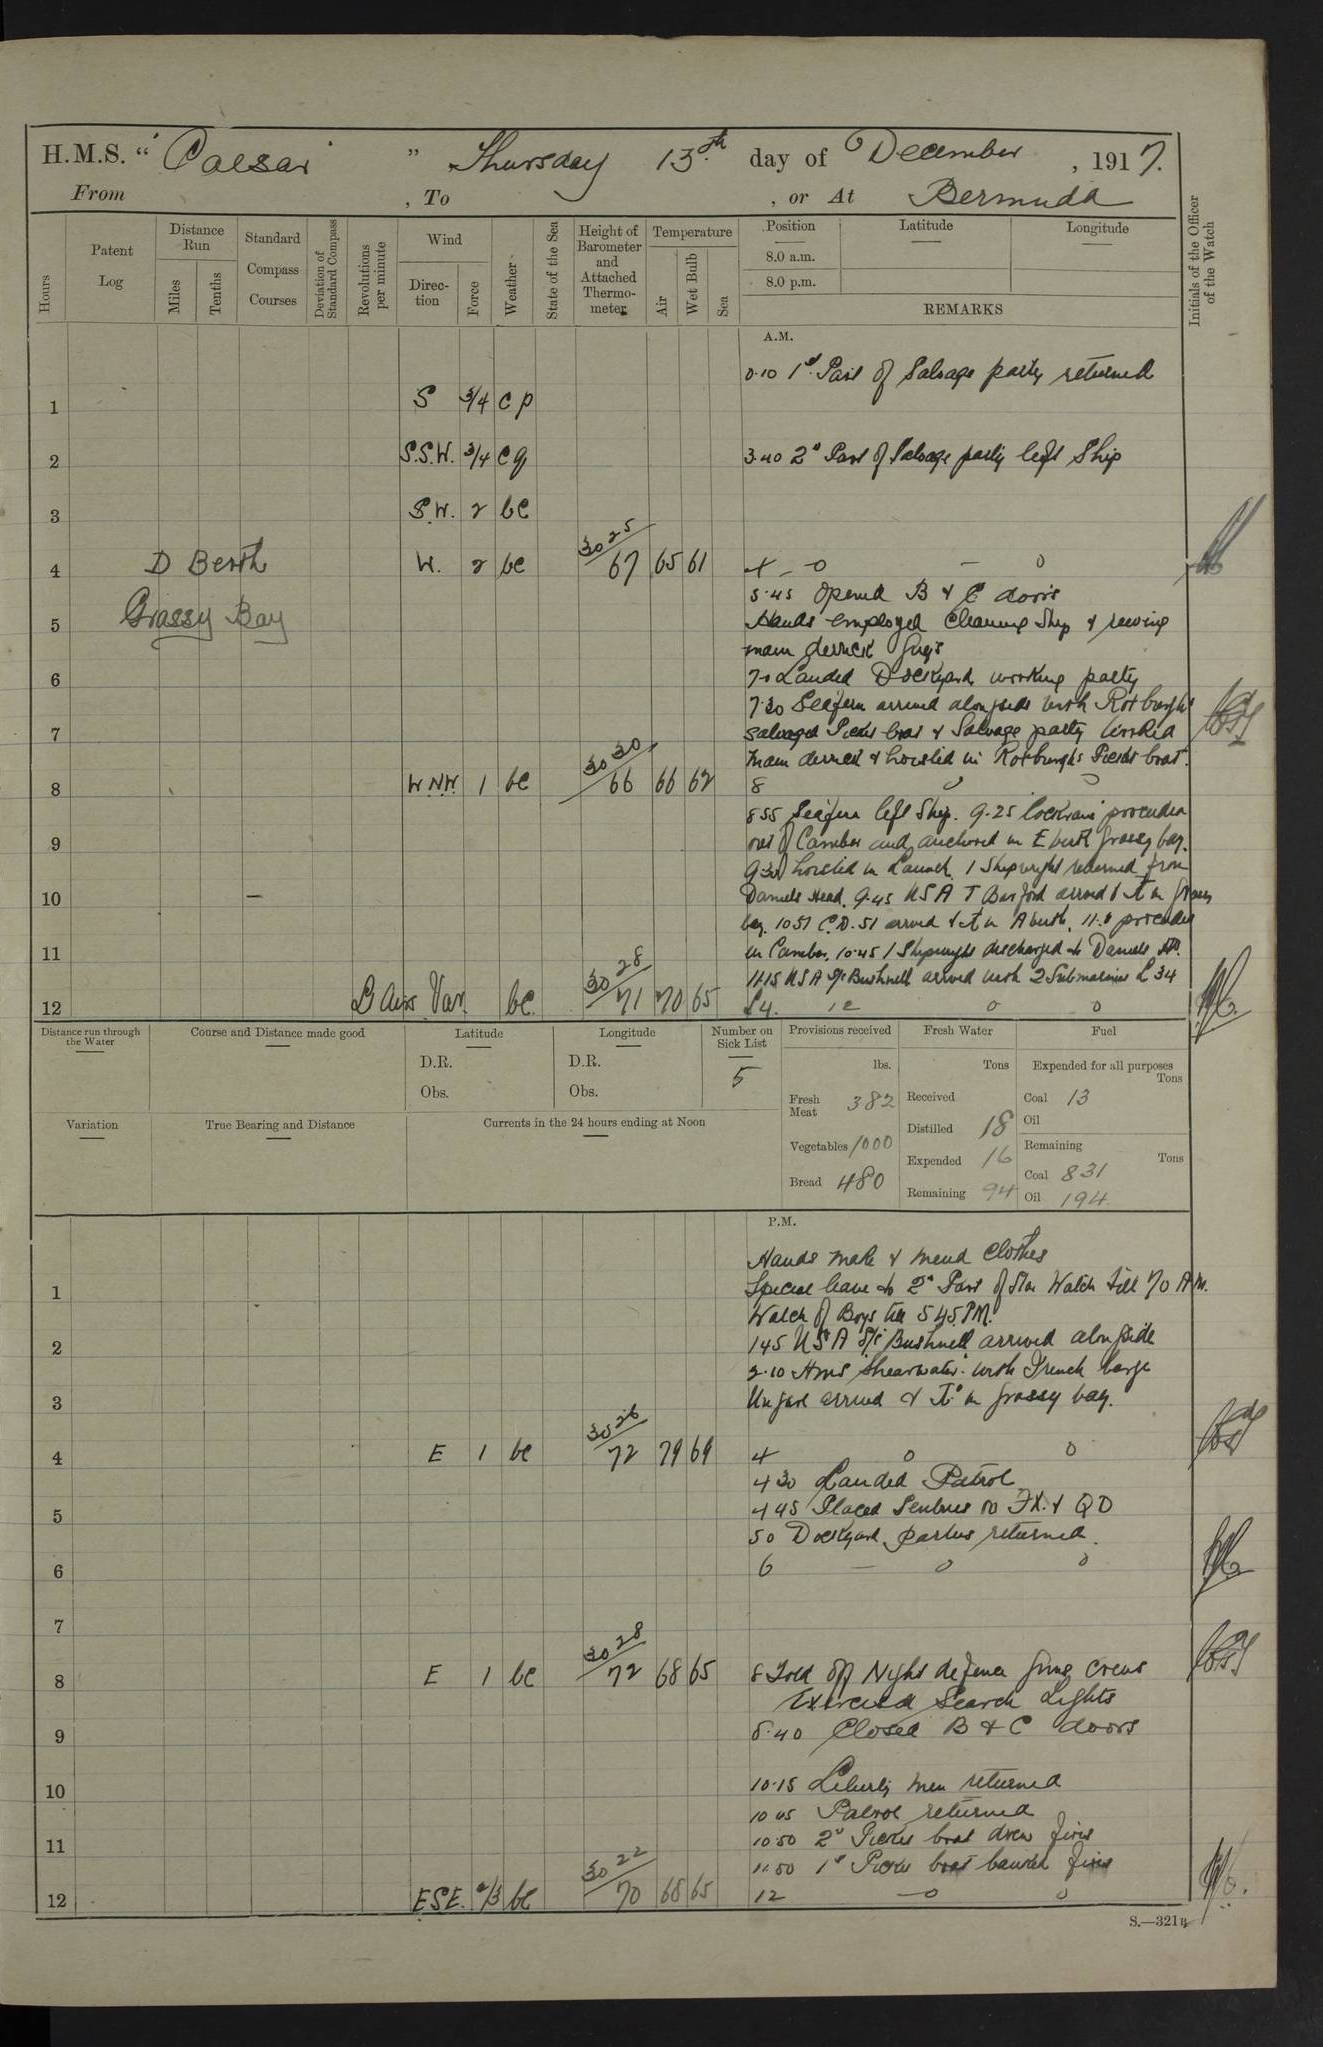 H.M.S. " Caesar " Thursday 13th day of December , 1917.
From , To , or At Bermuda
Hours
Patent Log
Distance Run
Miles
Tenths
Standard Compass Courses
Deviation of Standard Compass
Revolutions per minute
Wind
Direction
Force
Weather
State of the Sea
Height of Barometer and Attached Thermometer
Temperature
Air
Wet Bulb
Sea
Position
Latitude
Longitude
8.0 a.m.
8.0 p.m.
REMARKS
Initials of the Officer of the Watch
A.M.
0.10 1st Part of Salvage party returned
1 S 3/4 c p
2 S.S.W. 3/4 c q 3.40 2d Part of Salvage party left Ship
3 S.W. 2 bc
4 D Berth W. 2 bc 30 25/67 65 61 4 - 0 - 0
5.45 opened B & C doors
5 Grassy Bay Hands employed Cleaning Ship & reeving
main derrick guys
6 7.0 Landed Dockyard working party
7.30 Seafern arrived alongside with Roxburghs
7 salvaged Picket boat & Salvage party worked
main derrick & hoisted in Roxburghs Picket boat.
8 W N W. 1 bc 30 30/66 66 62 8 0 0
8.55 Seafern left Ship. 9.25 proceeded
9 out of Camber and anchored in E berth grassy bay.
9.30 hoisted in Launch. 1 Shipwright returned from
10 Daniels Head. 9.45 U S A T Buford arrived & in grassy
bay. 10.51 C.D. 51 arrived & in A berth. 11.0 proceeded
11 in Camber. 10.45 1 Shipwright discharged to Daniels Hd.
11.15 U S A S/S Bushnell arrived with 2 Submarines L 34
12 Lt Airs Var. bc. 30 28/71 70 65 L 4. 12 0 0
Distance run through the Water
Course and Distance made good
Latitude
D.R.
Obs.
Longitude
D.R.
Obs.
Number on Sick List
5
Provisions received
lbs.
Fresh Meat 382
Vegetables 1000
Bread 480
Fresh Water
Tons
Received
Distilled 18
Expended 16
Remaining 94
Fuel
Expended for all purposes
Tons
Coal 13
Oil
Remaining
Tons
Coal 831
Oil 194
Variation
True Bearing and Distance
Currents in the 24 hours ending at Noon
P.M.
Hands make & mend Clothes
1 Special leave to 2d Part of Star Watch till 7.0 AM.
Watch of Boys till 5.45 PM.
2 1.45 U S A S/S Bushnell arrived alongside
2.10 Hms Shearwater with French barge
3 arrived & in grassy bay.
4 E 1 bc 30 26/72 79 69 4 0 0
4 30 Landed Patrol
5 4 45 Placed Sentries on FX. & QD
5 0 Dockyard parties returned.
6 6 - 0 0
7
8 E 1 bc 30 28/72 68 65 8 Told off Night defence guns crews
Exercised Search Lights
9 8.40 Closed B & C doors
10 10.15 Liberty men returned
10 45 Patrol returned
11 10 50 2d Picket boat drew fires
11.50 1st Picket boat banked fires
12 ESE. 2/3 bc 30 22/70 68 65 12 0 0
S.—321 B